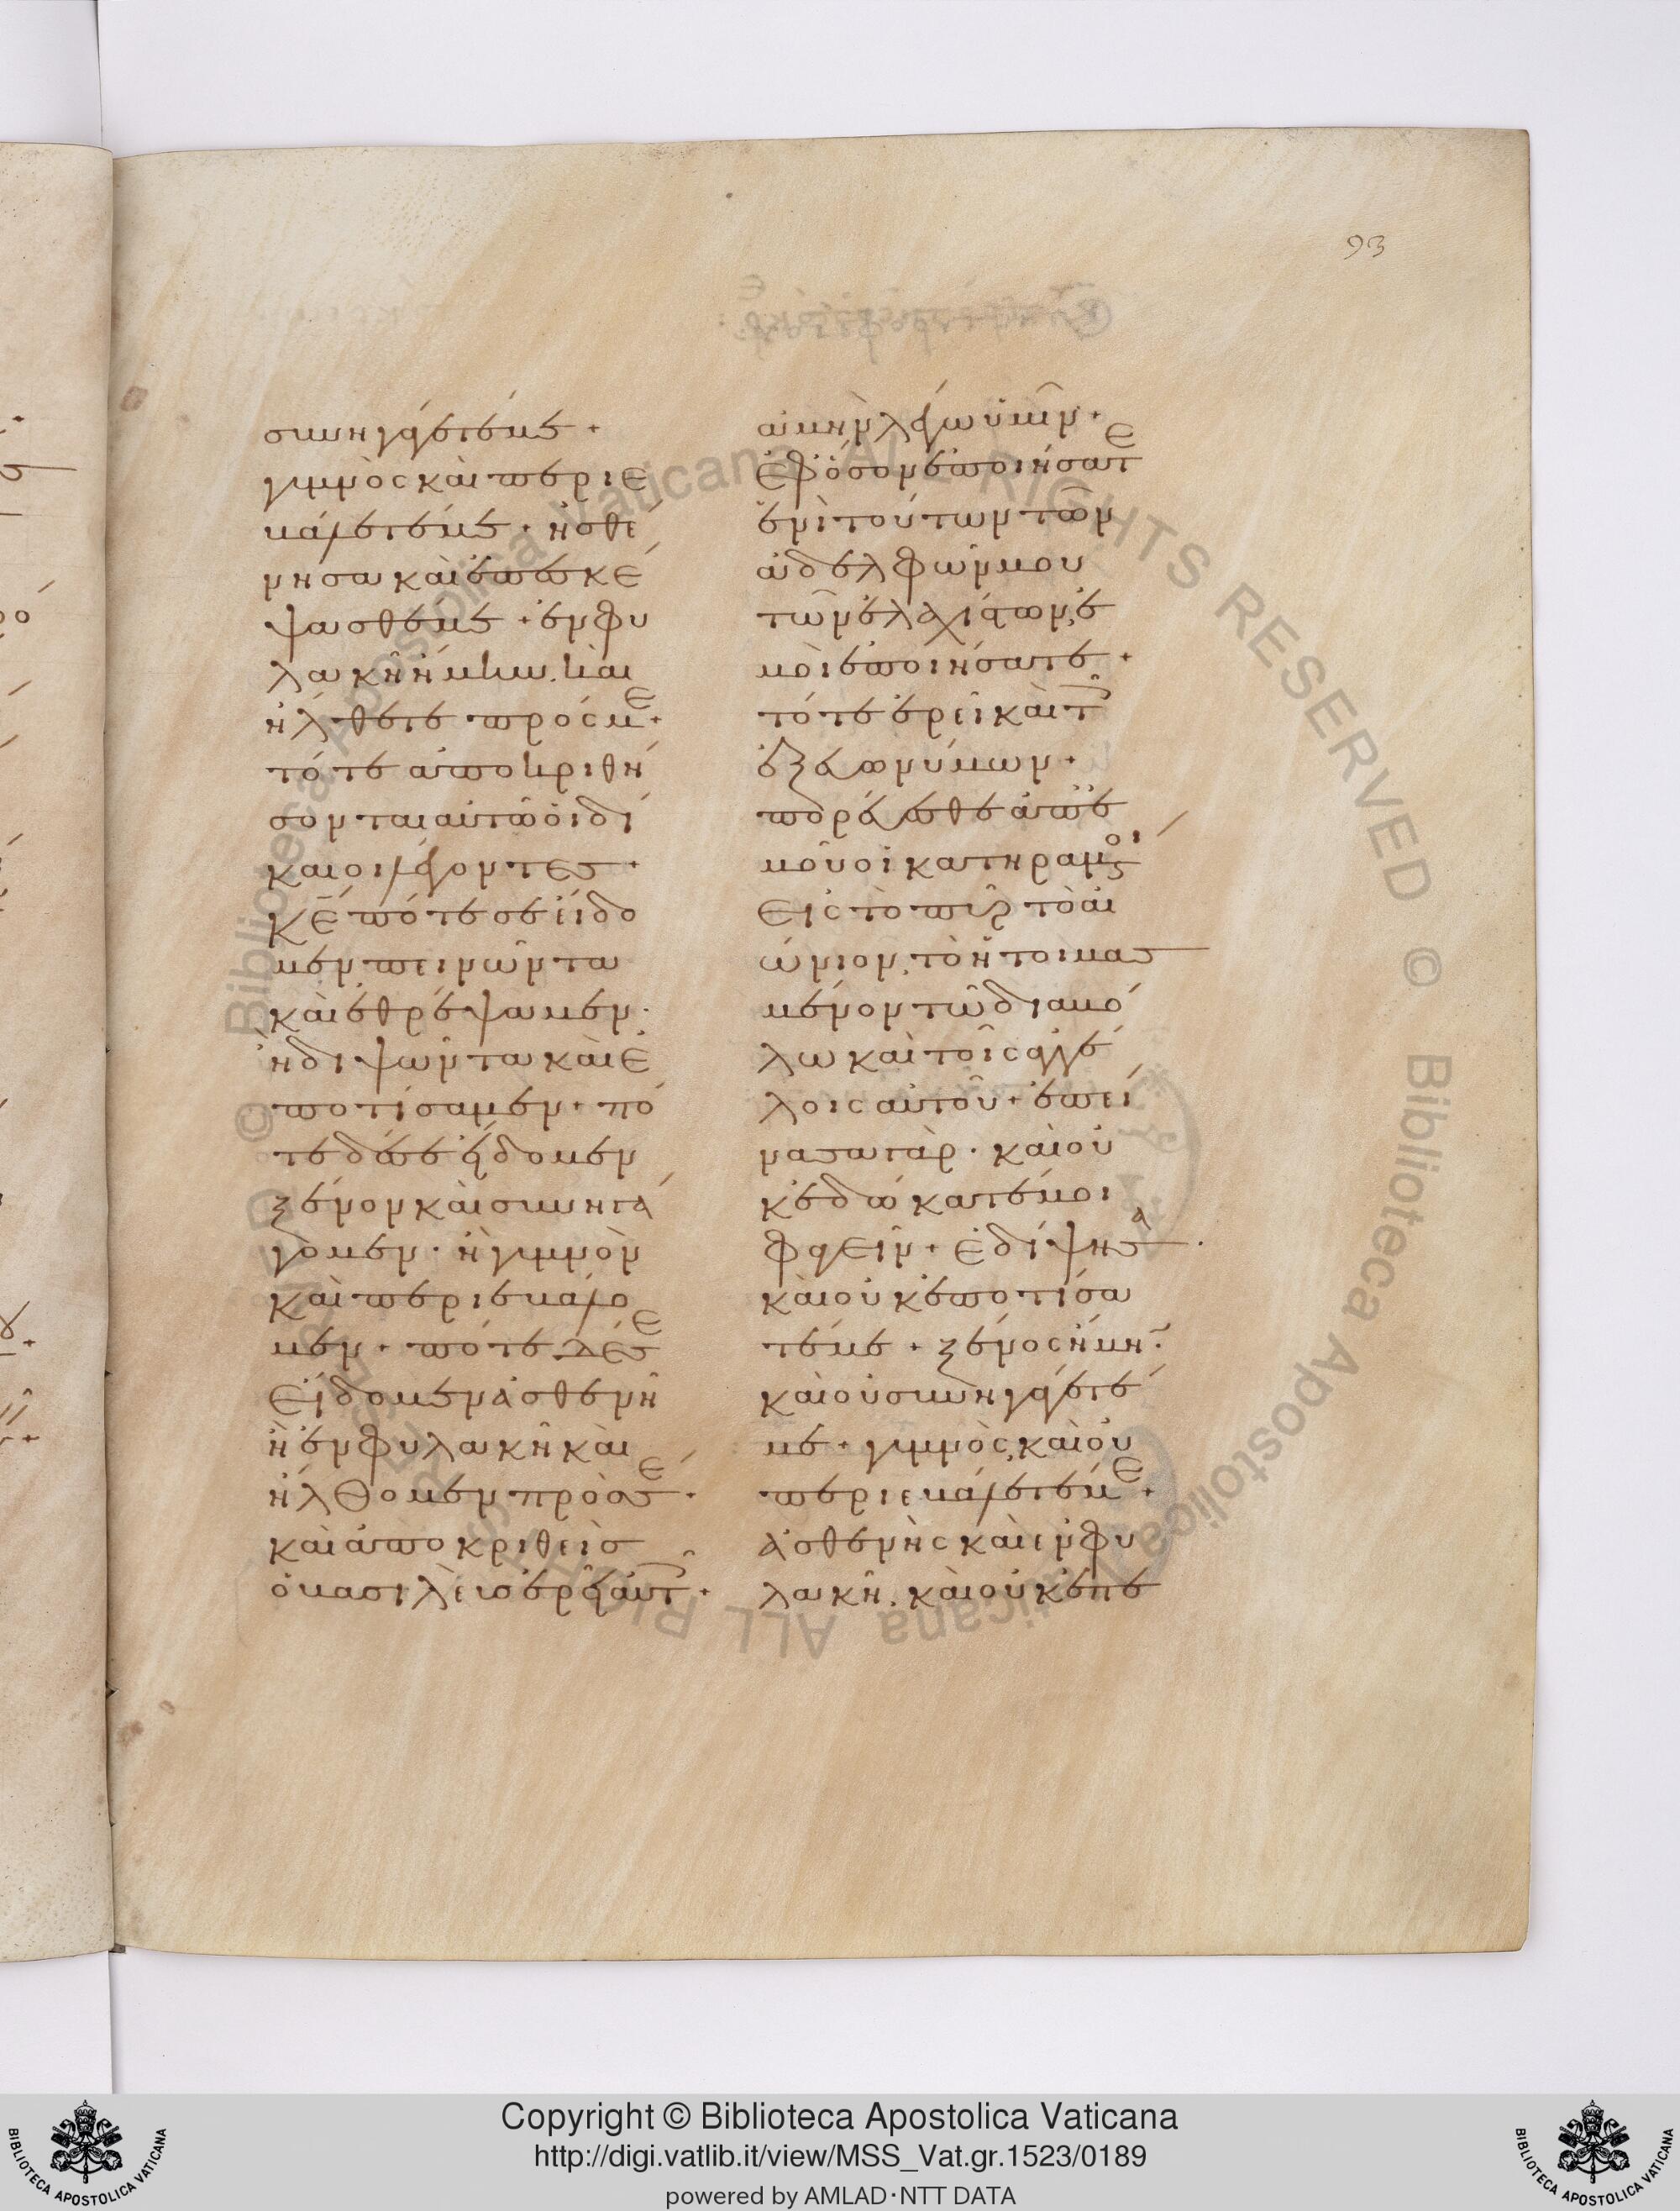 93
συνηγάγετέ με +
γυμνὸς καὶ περιε
βάλετέ με + ἠσθέ
νησα καὶ ἐπεσκέ
ψασθέ με + ἐν φυ
λακῆ ἤμην. καὶ
ἤλθετε πρός με +
τότε ἀποκριθή
σονται αὐτῶ οἱ δί
καιοι λέγοντες +
κ̅ε̅ πότε σὲ εἴδο
μεν πεινῶντα
καὶ ἐθρέψαμεν ·
ἢ διψῶντα καὶ ἐ
ποτίσαμεν + πό
τε δέ σε εἴδομεν
ξένον καὶ συνηγά
γομεν · ἢ γυμνὸν
καὶ περιεβάλο
μεν + πότε δέ σε
εἴδομεν ἀσθενῆ
ἢ ἐν φυλακῆ καὶ
ἤλθομεν πρός σε ·
καὶ ἀποκριθεὶς
ὁ βασιλεὺς ἐρεῖ αὐτοῖς +
ἀμὴν λέγω ὑμῖν +
ἐφ' ὅσον ἐποιήσατε
ἑνὶ τούτων τῶν
ἀδελφῶν μου
τῶν ἐλαχίστων, ἐ
μοὶ ἐποιήσατε +
τότε ἐρεῖ καὶ τοῖς
ἐξ εὐωνύμων +
πορεύεσθε ἀπ' ἐ
μοῦ οἱ κατηραμένοι
εἰς τὸ πῦρ τὸ αἰ
ώνιον, τὸ ἡτοιμασ
μένον τῶ διαβό
λω καὶ τοῖς ἀγγέ
λοις αὐτοῦ + ἐπεί
νασα γὰρ · καὶ οὐ
κ ἐδώκατέ μοι
φαγεῖν + ἐδίψησα ·
καὶ οὐκ ἐποτίσα
τέ με + ξένος ἤμην ·
καὶ οὐ συνηγάγετέ
με + γυμνὸς, καὶ οὐ
περιεβάλετέ με +
ἀσθενὴς καὶ ἐν φυ
λακῆ. καὶ οὐκ ἐπε
Copyright © Biblioteca Apostolica Vaticana
http://digi.vatlib.it/view/MSS_Vat.gr.1523/0189
powered by AMLAD·NTT DATA
BIBLIOTECA APOSTOLICA VATICANA
BIBLIOTECA APOSTOLICA VATICANA
© Biblioteca Apostolica Vaticana ALL RIGHTS RESERVED
© Biblioteca Apostolica Vaticana ALL RIGHTS RESERVED